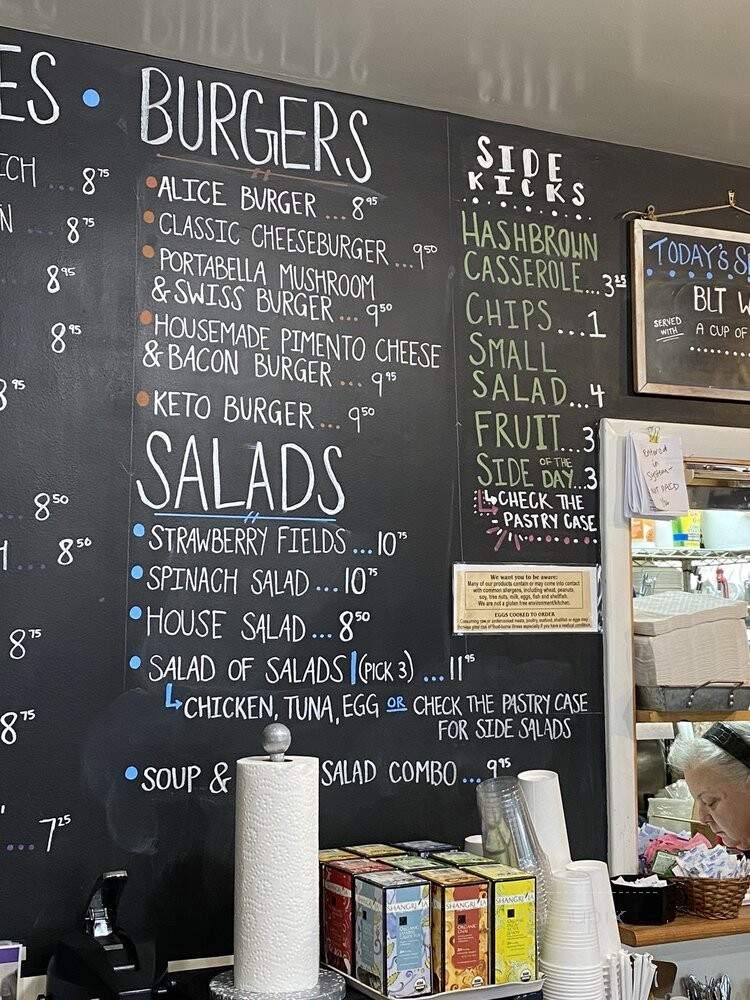 ES •
ICH ... 8 75
N ... 8 75
8 95
8 95
9 95
... 8 50
8 50
8 75
8 75
... 7 25
BURGERS
ALICE BURGER ... 8 95
CLASSIC CHEESEBURGER ... 9 50
PORTABELLA MUSHROOM
& SWISS BURGER ... 9 50
HOUSEMADE PIMENTO CHEESE
& BACON BURGER ... 9 95
KETO BURGER ... 9 50
SALADS
STRAWBERRY FIELDS ... 10 75
SPINACH SALAD ... 10 75
HOUSE SALAD ... 8 50
SALAD OF SALADS (PICK 3) ... 11 95
CHICKEN, TUNA, EGG OR CHECK THE PASTRY CASE
FOR SIDE SALADS
SOUP & SALAD COMBO ... 9 95
SIDE
KICKS
HASHBROWN
CASSEROLE... 3 25
CHIPS ... 1
SMALL
SALAD... 4
FRUIT... 3
SIDE OF THE DAY... 3
CHECK THE
PASTRY CASE
We want you to be aware:
Many of our products contain or may come into contact
with common allergens, including wheat, peanuts,
soy, tree nuts, milk, eggs, fish and shellfish.
We are not a gluten free environment/kitchen.
EGGS COOKED TO ORDER
Consuming raw or undercooked meats, poultry, seafood, shellfish or eggs may
increase your risk of food-borne illness especially if you have a medical condition.
TODAY'S
BLT
SERVED
WITH
A CUP OF
Entered
in
System-
NOT PAID
SHANGRI LA
SHANGRI LA
SHANGRI LA
ORGANIC
ORGANIC
CHAI
ORGANIC